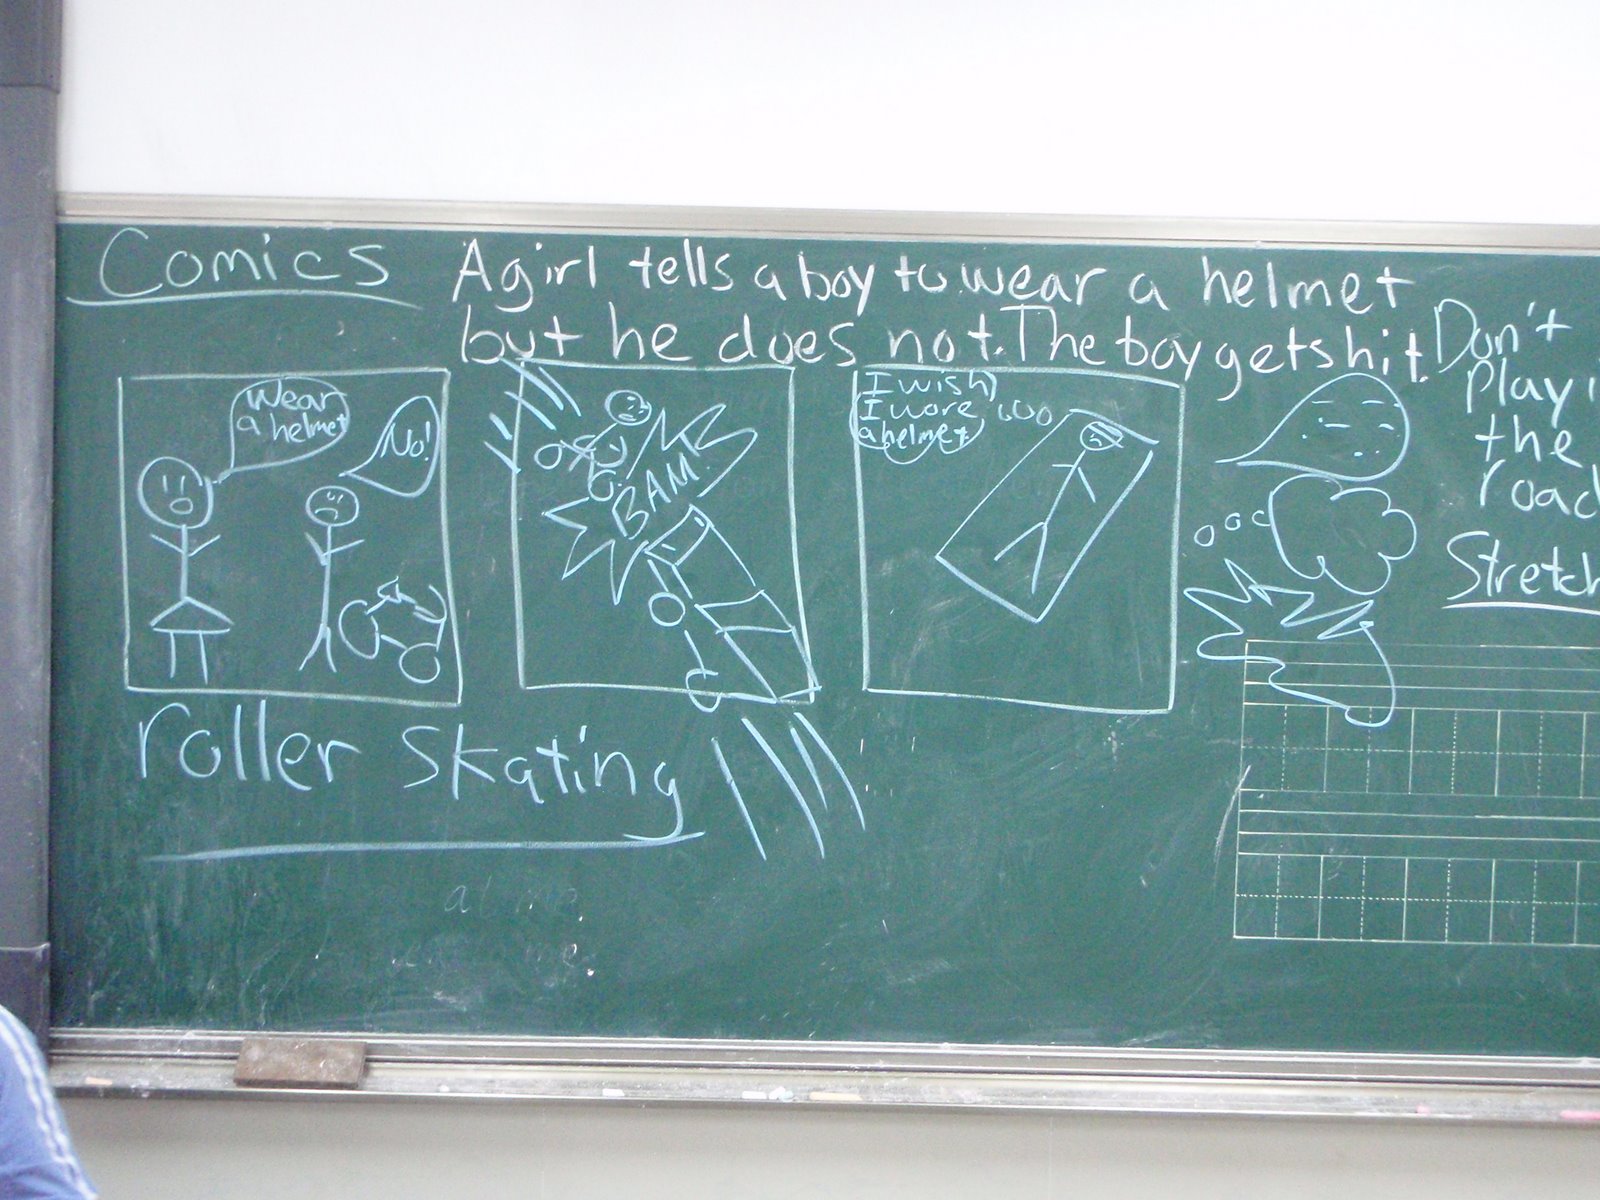 Comics
A girl tells a boy to wear a helmet
but he does not. The boy gets hit.
Wear
a helmet
No!
BAM
I wish
I wore
a helmet
Don't
Play
the
road
Stretch
roller skating